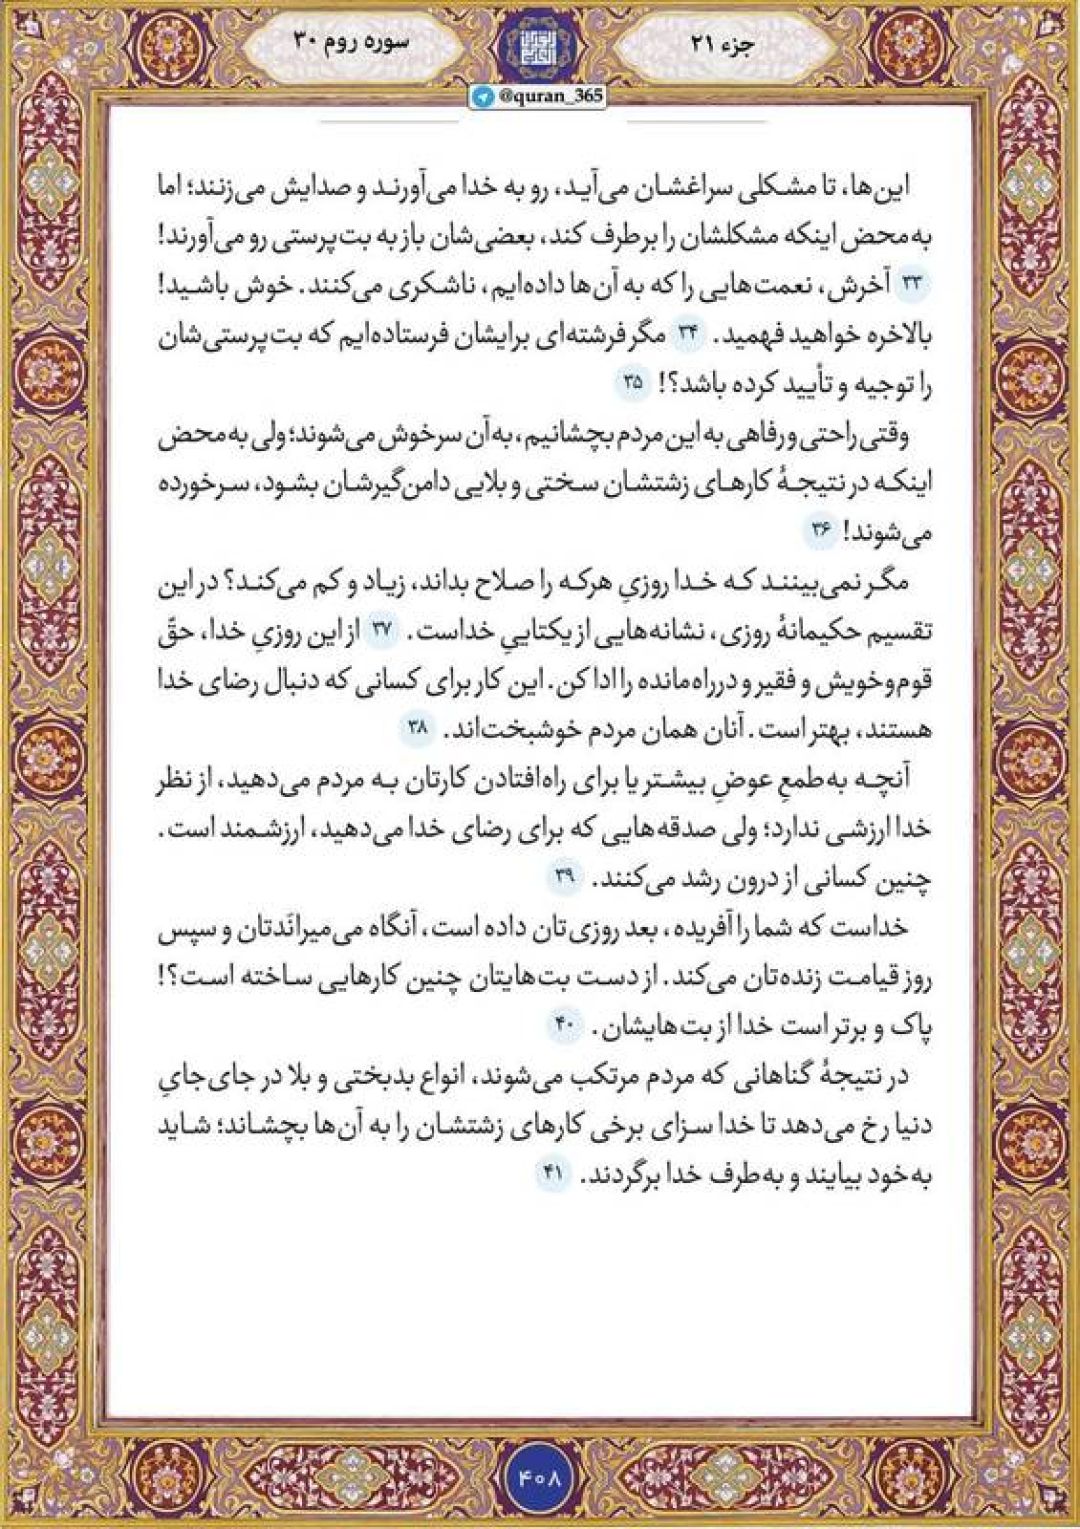 جزء ۲۱
سوره روم ۳۰
@quran_365
این‌ها، تا مشکلی سراغشان می‌آید، رو به خدا می‌آورند و صدایش می‌زنند؛ اما
به‌محض اینکه مشکلشان را برطرف کند، بعضی‌شان باز به بت‌پرستی رو می‌آورند!
۳۳ آخرش، نعمت‌هایی را که به آن‌ها داده‌ایم، ناشکری می‌کنند. خوش باشید!
بالاخره خواهید فهمید. ۳۴ مگر فرشته‌ای برایشان فرستاده‌ایم که بت‌پرستی‌شان
را توجیه و تأیید کرده باشد؟! ۳۵
وقتی راحتی و رفاهی به این مردم بچشانیم، به آن سرخوش می‌شوند؛ ولی به‌محض
اینکه در نتیجهٔ کارهای زشتشان سختی و بلایی دامن‌گیرشان بشود، سرخورده
می‌شوند! ۳۶
مگر نمی‌بینند که خدا روزیِ هرکه را صلاح بداند، زیاد و کم می‌کند؟ در این
تقسیم حکیمانهٔ روزی، نشانه‌هایی از یکتاییِ خداست. ۳۷ از این روزیِ خدا، حقّ
قوم‌وخویش و فقیر و درراه‌مانده را ادا کن. این کار برای کسانی که دنبال رضای خدا
هستند، بهتر است. آنان همان مردم خوشبخت‌اند. ۳۸
آنچه به‌طمعِ عوضِ بیشتر یا برای راه‌افتادن کارتان به مردم می‌دهید، از نظر
خدا ارزشی ندارد؛ ولی صدقه‌هایی که برای رضای خدا می‌دهید، ارزشمند است.
چنین کسانی از درون رشد می‌کنند. ۳۹
خداست که شما را آفریده، بعد روزی‌تان داده است، آنگاه می‌میرانَدتان و سپس
روز قیامت زنده‌تان می‌کند. از دست بت‌هایتان چنین کارهایی ساخته است؟!
پاک و برتر است خدا از بت‌هایشان. ۴۰
در نتیجهٔ گناهانی که مردم مرتکب می‌شوند، انواع بدبختی و بلا در جای‌جایِ
دنیا رخ می‌دهد تا خدا سزای برخی کارهای زشتشان را به آن‌ها بچشاند؛ شاید
به‌خود بیایند و به‌طرف خدا برگردند. ۴۱
۴۰۸